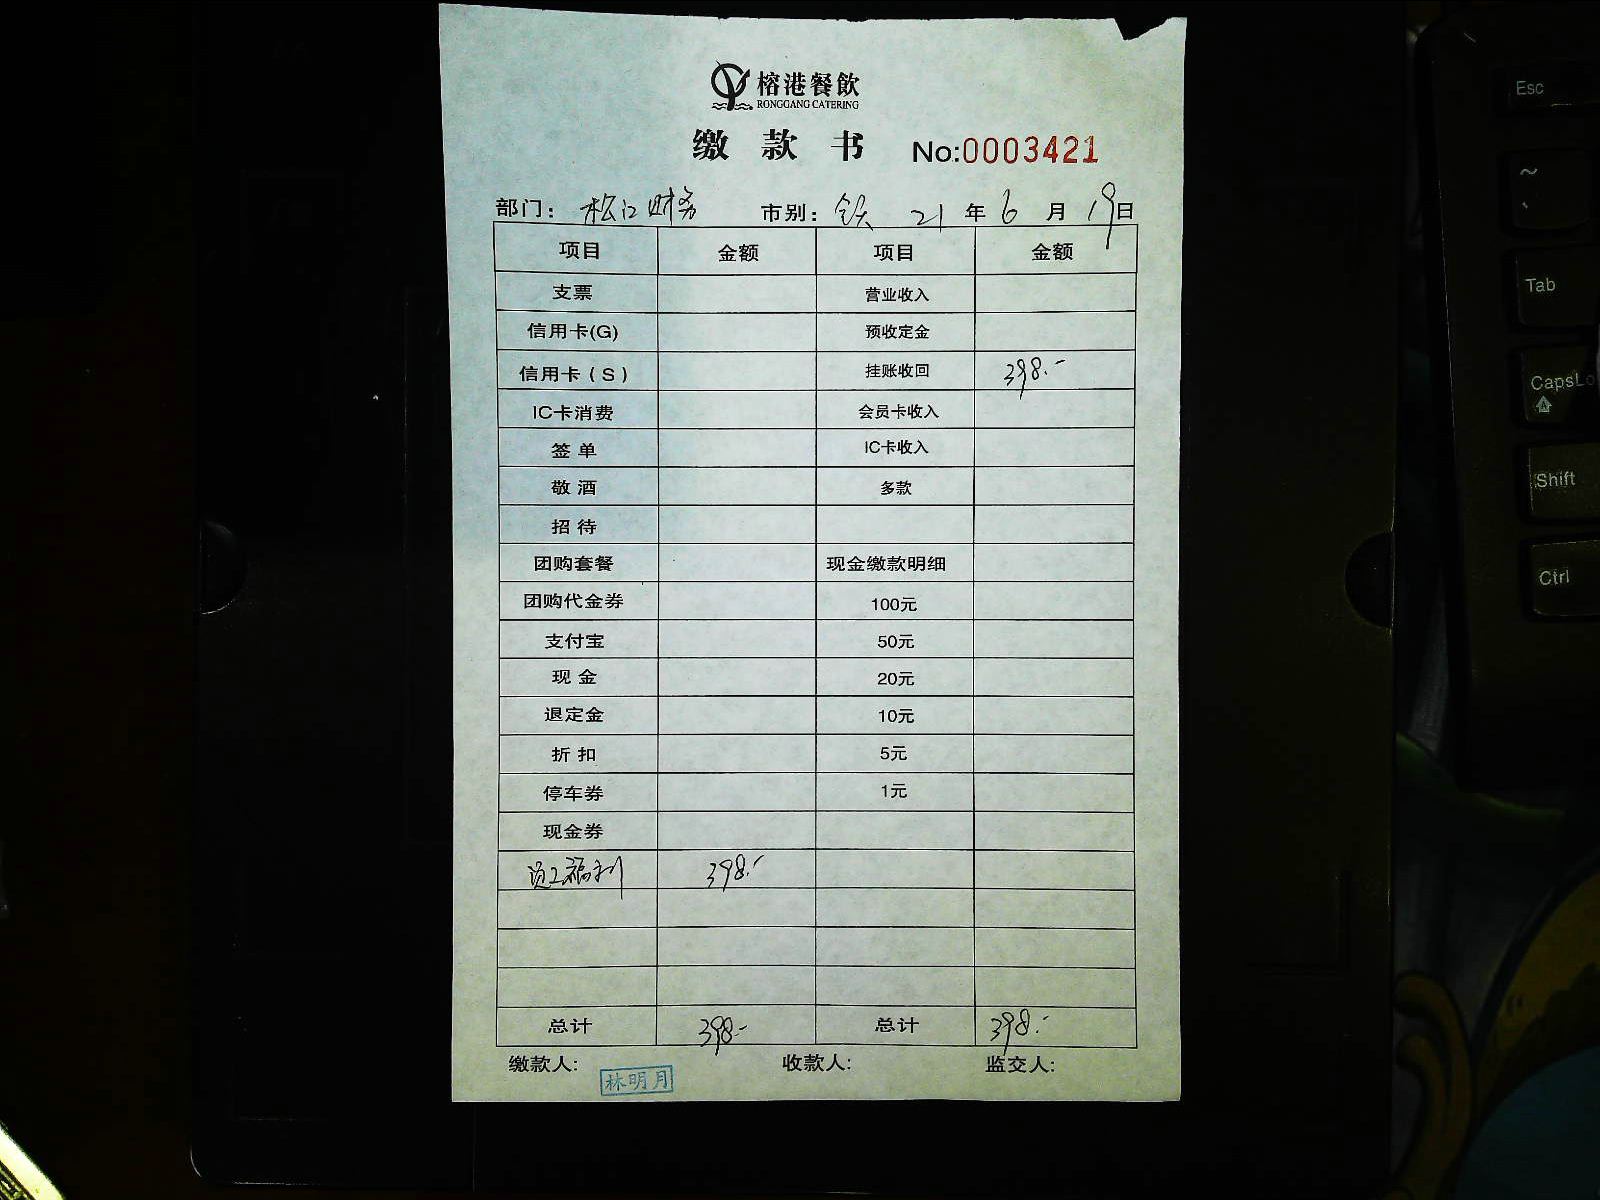 榕港餐飲
RONGGANG CATERING
缴款书 No:0003421
部门：松江财务 市别： 21年6月19日
项目 金额 项目 金额
支票 营业收入
信用卡(G) 预收定金
信用卡（S） 挂账收回 398.-
IC卡消费 会员卡收入
签单 IC卡收入
敬酒 多款
招待
团购套餐 现金缴款明细
团购代金券 100元
支付宝 50元
现金 20元
退定金 10元
折扣 5元
停车券 1元
现金券
员工福利 398.-
总计 398- 总计 398.-
缴款人: 林明月 收款人: 监交人:
Esc
~
Tab
CapsLo
Shift
Ctrl